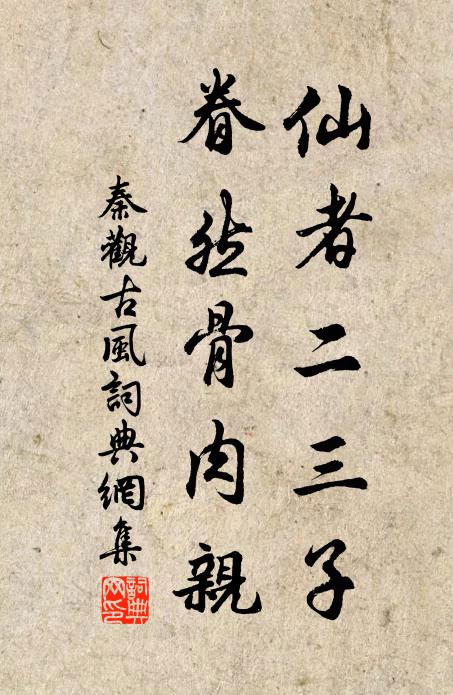 仙者二三子
眷然骨肉親
秦觀古風詞典網集
詞典网印